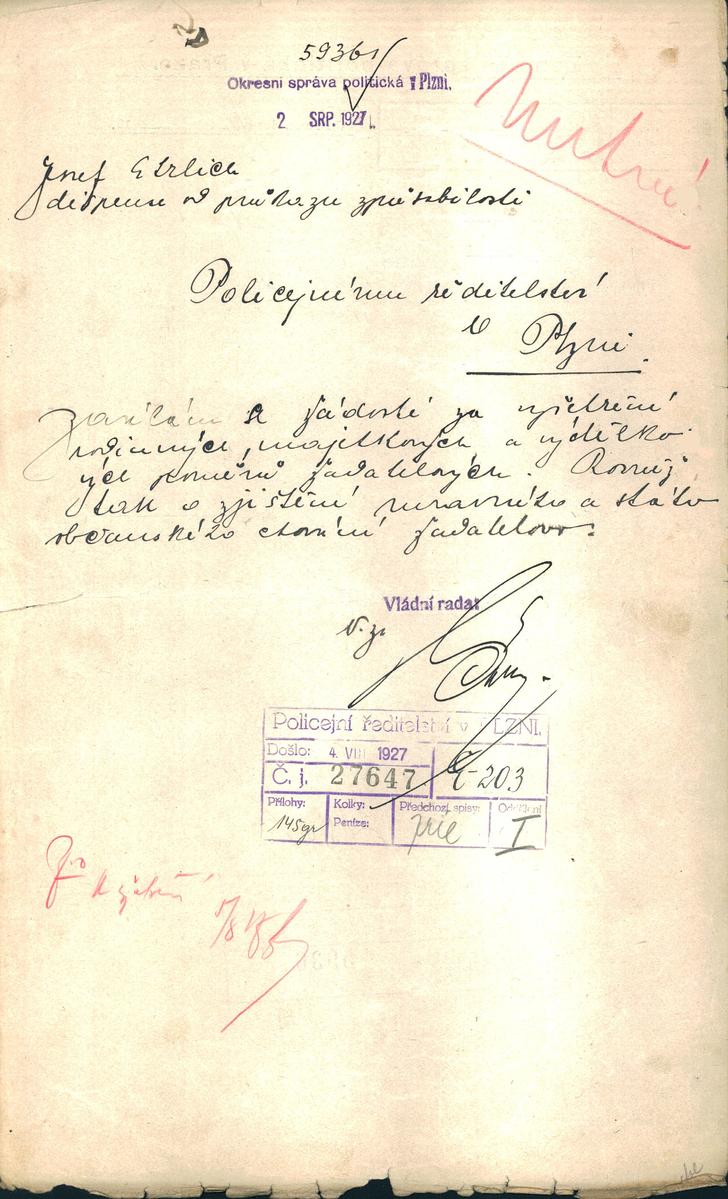 59361
Okresní správa politická v Plzni.
2 SRP. 1927
Nutné!
Josef Ehrlich
dispense od průkazu způsobilosti
Policejnímu ředitelství
v Plzni.
zasílám k žádosti za vyšetření
rodinných, majetkových a výdělko-
vých poměrů žadatelových. Rovněž
tak o zjištění mravního a státo
občanského chování žadatelova.
Vládní rada:
v. z.
Policejní ředitelství v PLZNI.
Došlo: 4. VIII 1927
Č. j. 27647 E-203
Přílohy: Kolky: Předchozí spisy: Oddělení
Peníze: I